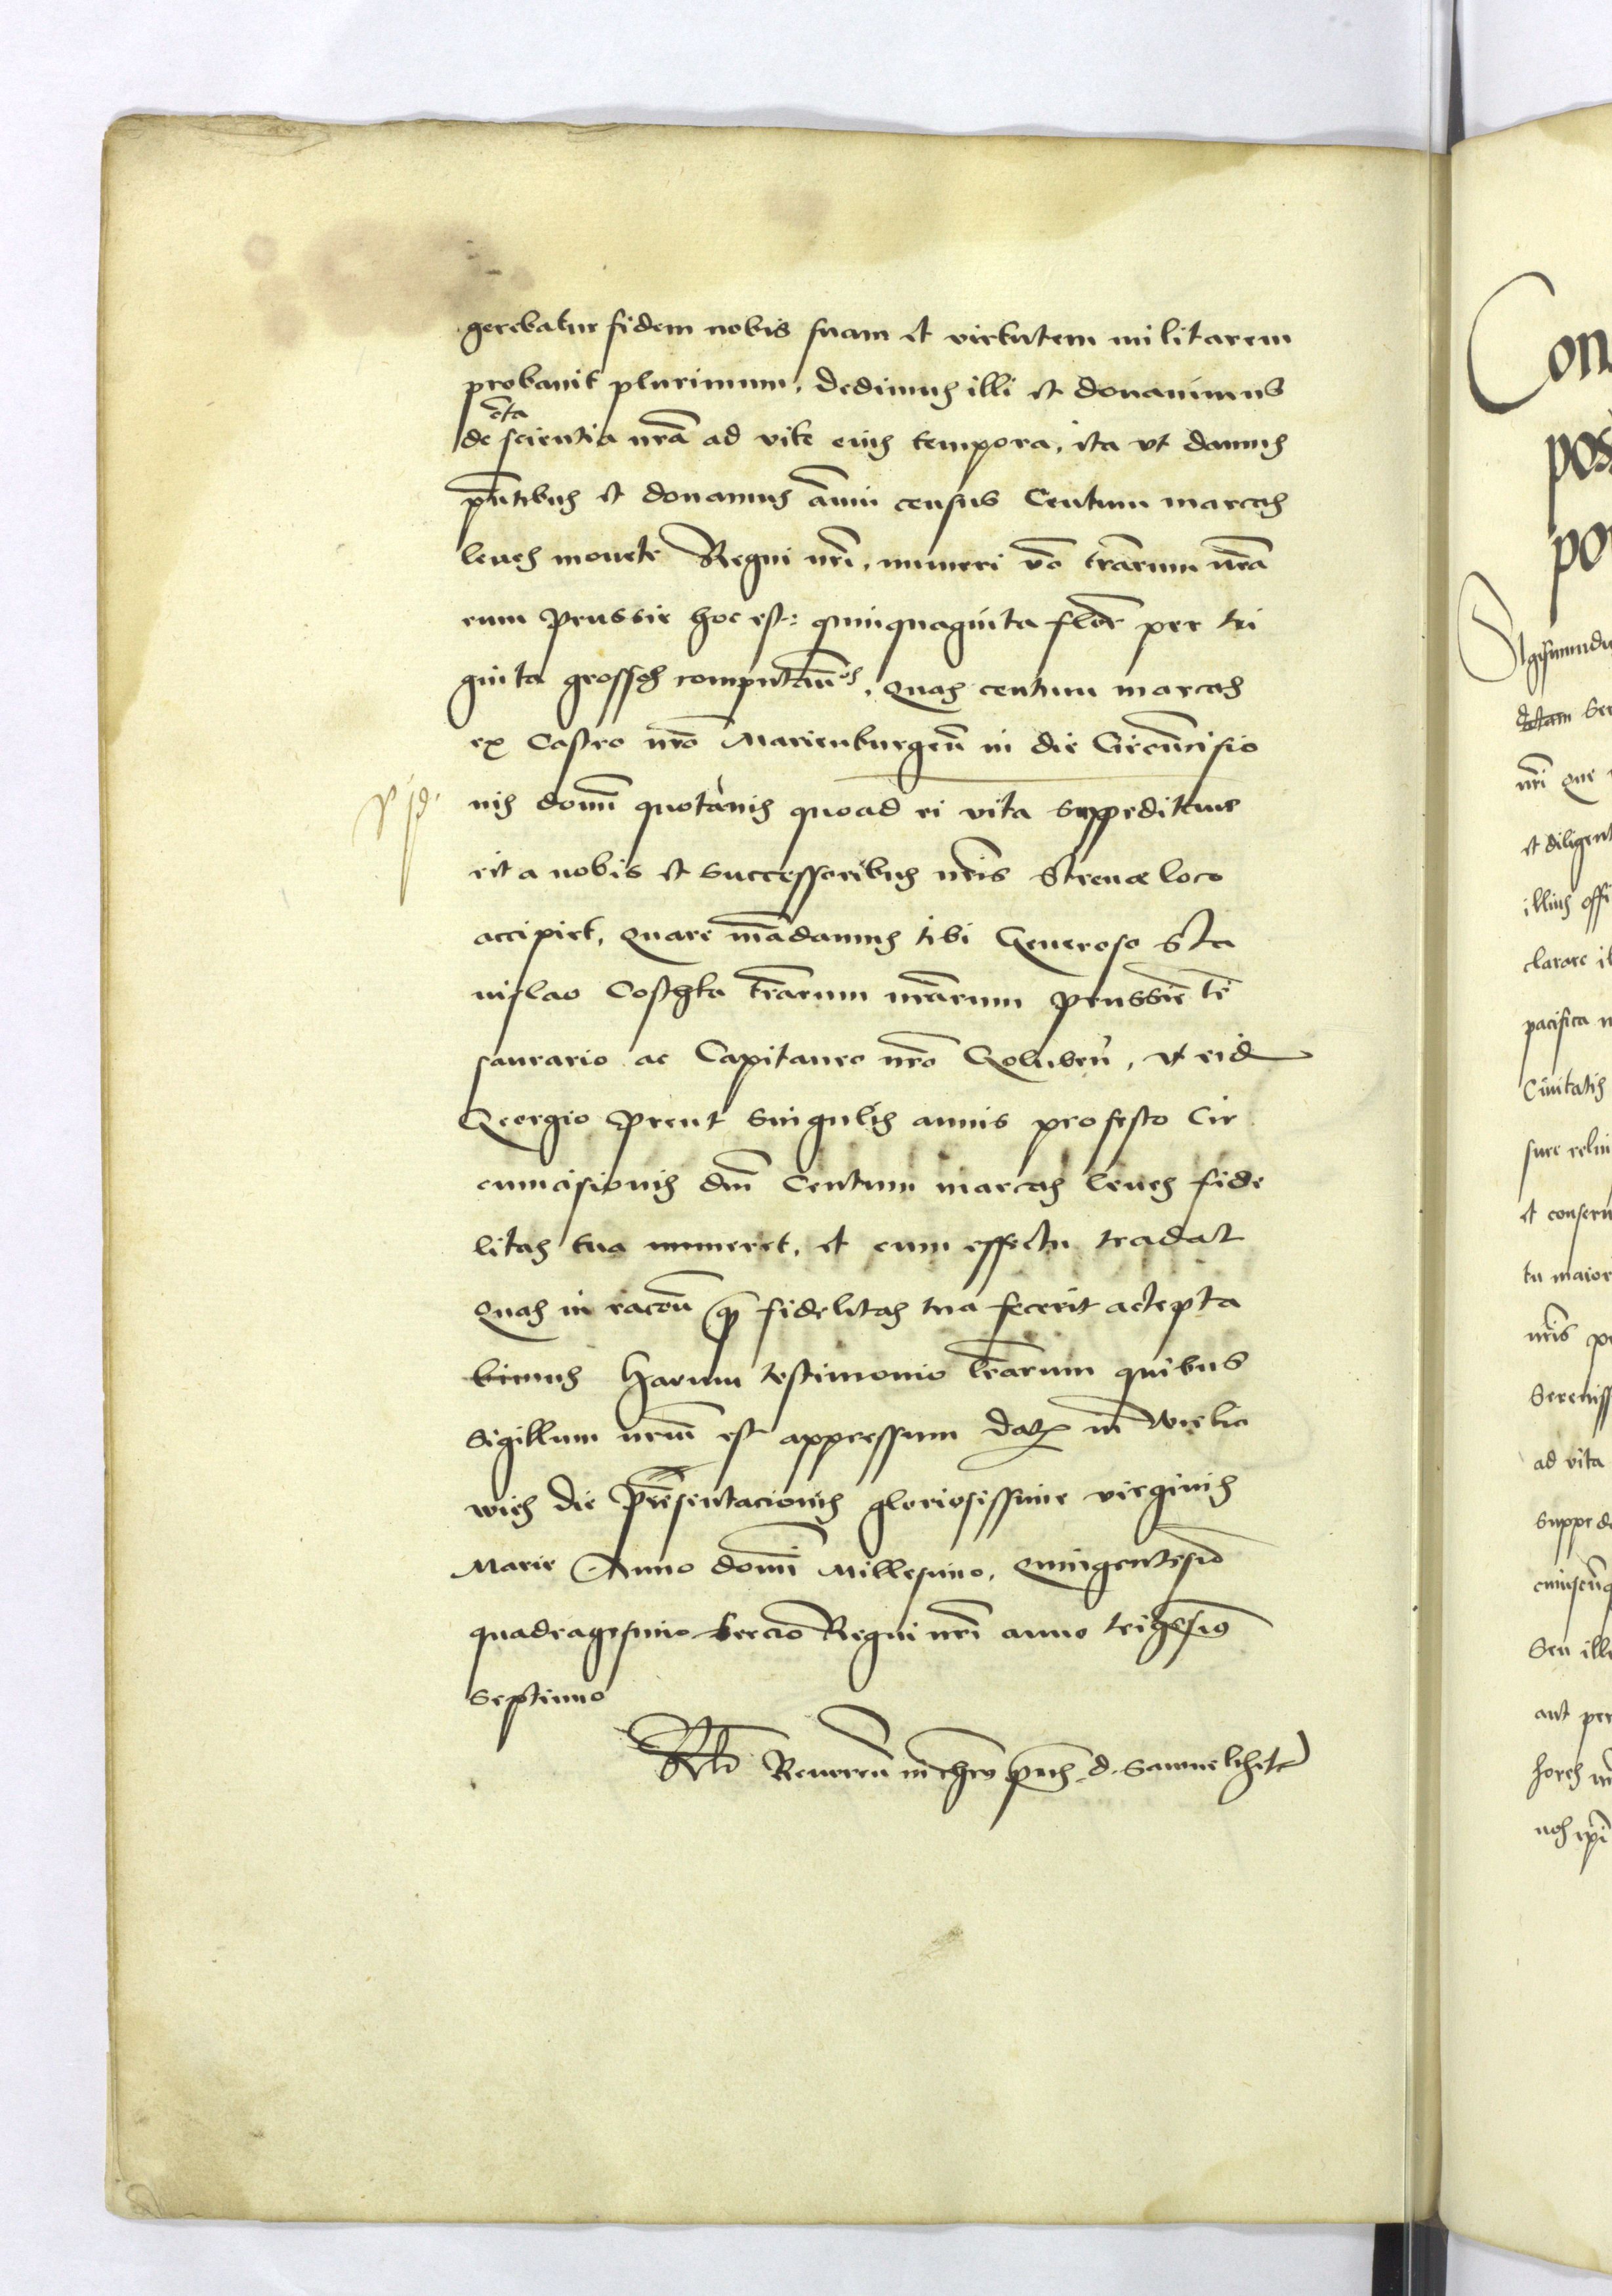 gerebatur fidem nobis suam et virtutem militarem
probavit plurimum, dedimus illi et donavimus
de c̄ta scientia nr̄a ad vite eius tempora, ita vt damus
pn̄tibus et donamus ānui census Centum marcas
leves monete Regni nrī, numeri vō trārum nrā
rum Prussie hoc est: quinquaginta flōr per tri
ginta grossos computan̄os, Quas centum marcas
ex Castro nrō Marienburgen̄ in die Circūncisio
nis domī quotānis quoad ei vita suppeditave
rit a nobis et successoribus nrīs Strenæ loco
accipiet, Quare mādamus tibi Generoso Sta
nislao Costhka trārum nrārum Prussie te
saurario ac Capitaneo nrō Goluben̄, vt eid
Georgio Prent singulis annis pro festo Cir
cumcisionis dnī Centum marcas leves fide
litas tua numeret, et cum effectu tradat
Quas in racōn q̄ fidelitas tua fecerit accepta
bimus Harum testimonio lrārum quibus
Sigillum nrūm est appressum Dat in Wielic
wich die Prēsentacionis gloriosissime virginis
Marie Anno domī Millesimo, Quingentesīo
quadragesimo tercio Regni nrī anno trigesīo
Septimo
Rlō Reveren̄ in chrō pr̄is d. Samuelis etc
Con
pos
po
Sigismundus
nrī que
et diligent
illius offi
clarare
pacifica
Civitatis
sure relin
et conserv
tu maior
nrīs
Sereniss
ad vita
Suppe
Seu ill
aut per